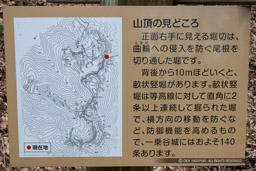 山頂の見どころ
正面右手に見える堀切は、
曲輪への侵入を防ぐ尾根を
切り通した堀です。
背後から10mほどいくと、
畝状竪堀があります。畝状竪
堀は等高線に対して直角に2
条以上連続して掘られた堀
で、横方向の移動を防ぐな
ど、防御機能を高めるもの
で、一乗谷城にはおよそ140
条あります。
現在地